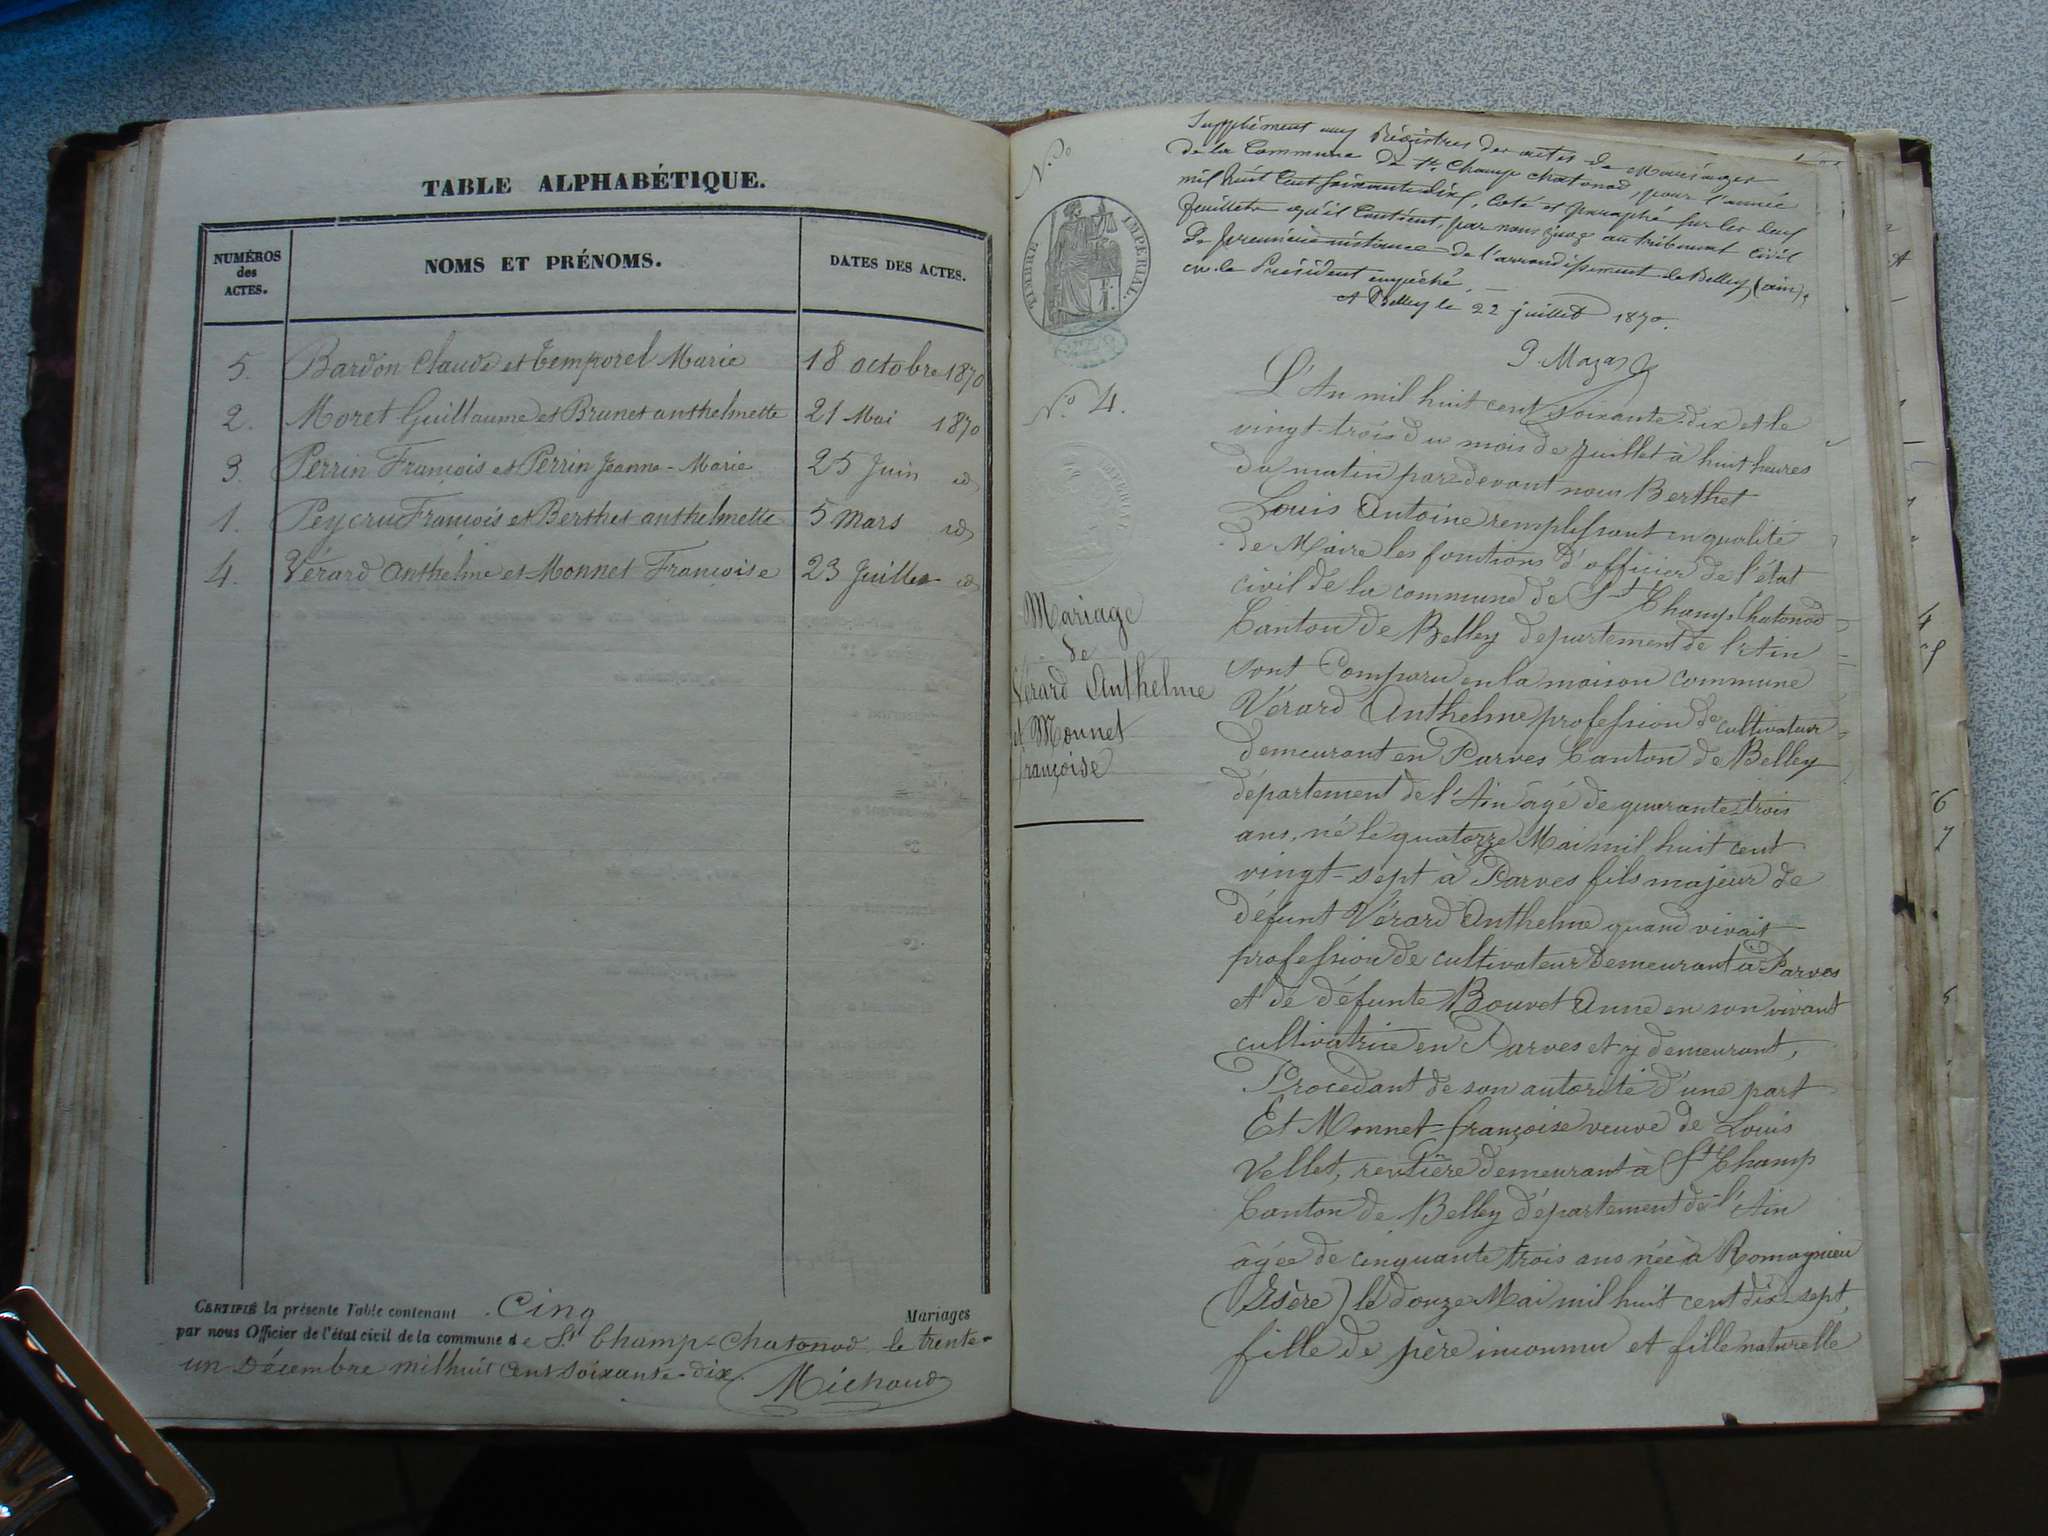 TABLE ALPHABÉTIQUE.
NUMÉROS des ACTES.
NOMS ET PRÉNOMS.
DATES DES ACTES.
5. Bardon Claude et Temporel Marie 18 octobre 1870
2. Moret Guillaume et Brunet anthelmette 21 Mai 1870
3. Perrin François et Perrin Jeanne-Marie 25 Juin id
1. Peycru François et Berthet anthelmette 5 Mars id
4. Vérard Anthelme et Monnet Françoise 23 Juillet id
CERTIFIÉ la présente Table contenant Cinq Mariages
par nous Officier de l'état civil de la commune de St Champ-Chatonod, le trente-
un Décembre mil huit cent soixante-dix.
Michaud
N.o
Supplément aux Régistres des actes de Mariages
de la Commune de St. Champ Chatonod pour l'année
mil huit cent soixante dix, Coté et paraphé sur les deux
feuillets qu'il Contient, par nous juge au tribunal civil
de première instance de l'arrondissement de Belley (ain),
le Président empêché,
A Belley le 22 juillet 1870.
TIMBRE IMPERIAL.
N.o 4.
Mariage
de
Vérard Anthelme
et Monnet
françoise
L'An mil huit cent soixante-dix et le
vingt-trois du mois de Juillet à huit heures
du matin par devant nous Berthet
Louis Antoine remplissant en qualité
de Maire les fonctions d'officier de l'état
civil de la commune de St Champ Chatonod
Canton de Belley departement de l'Ain
sont Comparu en la maison commune
Vérard Anthelme profession de cultivateur
demeurant en Parves Canton de Belley
département de l'Ain âgé de quarante trois
ans, né le quatorze Mai mil huit cent
vingt-sept à Parves fils majeur de
défunt Vérard Anthelme quand vivait
profession de cultivateur demeurant à Parves
et de défunte Bouvet Anne en son vivant
cultivatrice en Parves et y demeurant,
Procédant de son autorité d'une part
Et Monnet françoise veuve de Louis
Vellet, rentière demeurant à St Champ
Canton de Belley département de l'Ain
âgée de cinquante trois ans née à Romagnieu
(Isère) le douze Mai mil huit cent dix-sept,
fille de père inconnu et fille naturelle